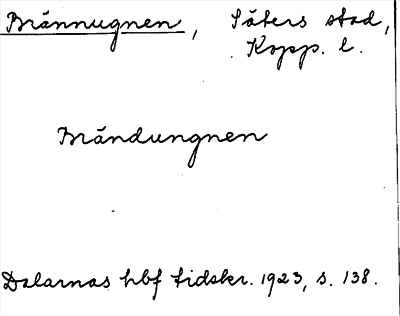 Brännugnen, Säters stad,
Kopp. l.
Brändungnen
Dalarnas hbf tidskr. 1923, s. 138.